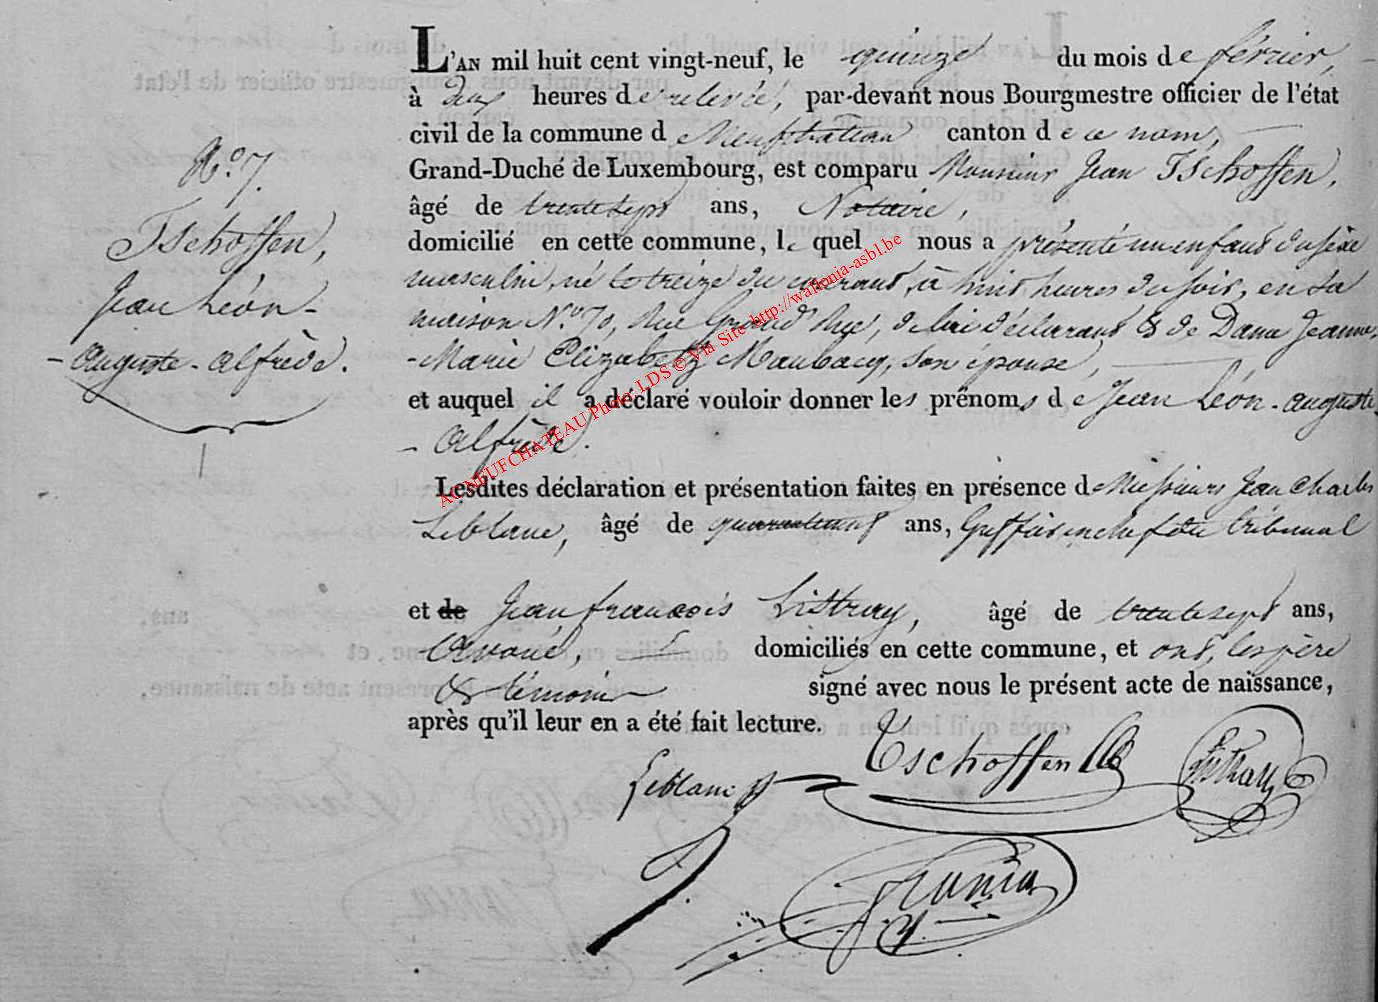 L'AN mil huit cent vingt-neuf, le quinze du mois de février,
à deux heures de relevée, par-devant nous Bourgmestre officier de l'état
civil de la commune d e Neufchateau canton d e ce nom,
Grand-Duché de Luxembourg, est comparu Monsieur Jean Tschoffen,
âgé de trente sept ans, Notaire,
domicilié en cette commune, le quel nous a présenté un enfant du sexe
masculin, né le treize du courant, à huit heures du soir, en sa
maison N.º 70, Rue, de lui déclarant & de Dame Jeanne
-Marie Elizabeth Maubacq, son epouse,
et auquel il a déclaré vouloir donner les prénoms de Jean Léon-auguste
-Alfrède.
Lesdites déclaration et présentation faites en présence d Messieurs Jean Charles
Leblanc, âgé de ans, Greffier en chef du tribunal
et de Jean françois Listray, âgé de trente sept ans,
Avoué, domiciliés en cette commune, et ont, les père
& témoins signé avec nous le présent acte de naissance,
après qu'il leur en a été fait lecture.
N.º 7.
Tschoffen,
Jean Léon-
-auguste-alfrède.
Leblanc Tschoffen Listray
AC NEUFCHATEAU Photo: LDS © Via Site -http://wallonia-asbl.be